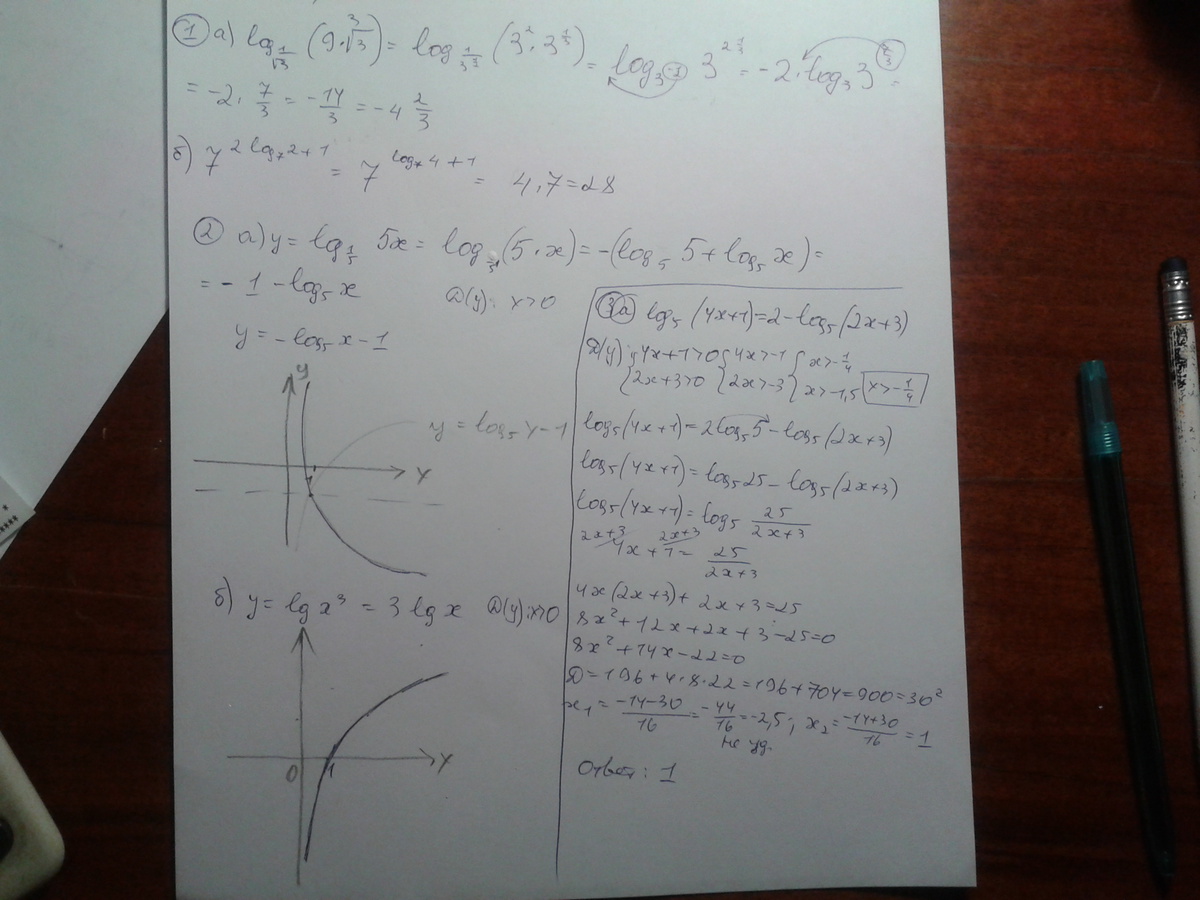 ① а) log_{1/√3} (9·∛3) = log_{1/3^{1/2}} (3²·3^{1/3}) = log_{3^{-1/2}} 3^{2 1/3} = -2·log₃ 3^{7/3} =
= -2·7/3 = -14/3 = -4 2/3
б) 7^{2 log₇ 2+1} = 7^{log₇ 4+1} = 4·7=28
② а) y = log_{1/5} 5x = log_{1/5} (5·x) = -(log₅ 5 + log₅ x) =
= -1 - log₅ x D(y): x>0
y = -log₅ x - 1
y
y = log₅ x - 1
1
x
б) y = lg x³ = 3 lg x D(y): x>0
0
1
x
③а log₅ (4x+1) = 2 - log₅ (2x+3)
D(y): { 4x+1>0 { 4x>-1 { x>-1/4
{ 2x+3>0 { 2x>-3 { x>-1,5 x>-1/4
log₅ (4x+1) = 2log₅ 5 - log₅ (2x+3)
log₅ (4x+1) = log₅ 25 - log₅ (2x+3)
log₅ (4x+1) = log₅ 25/(2x+3)
2x+3 2x+3
4x + 1 = 25/(2x+3)
4x(2x+3) + 2x+3 = 25
8x² + 12x + 2x + 3 - 25 = 0
8x² + 14x - 22 = 0
D = 196 + 4·8·22 = 196 + 704 = 900 = 30²
x₁ = (-14-30)/16 = -44/16 = -2,5; x₂ = (-14+30)/16 = 1
не уд.
Ответ: 1